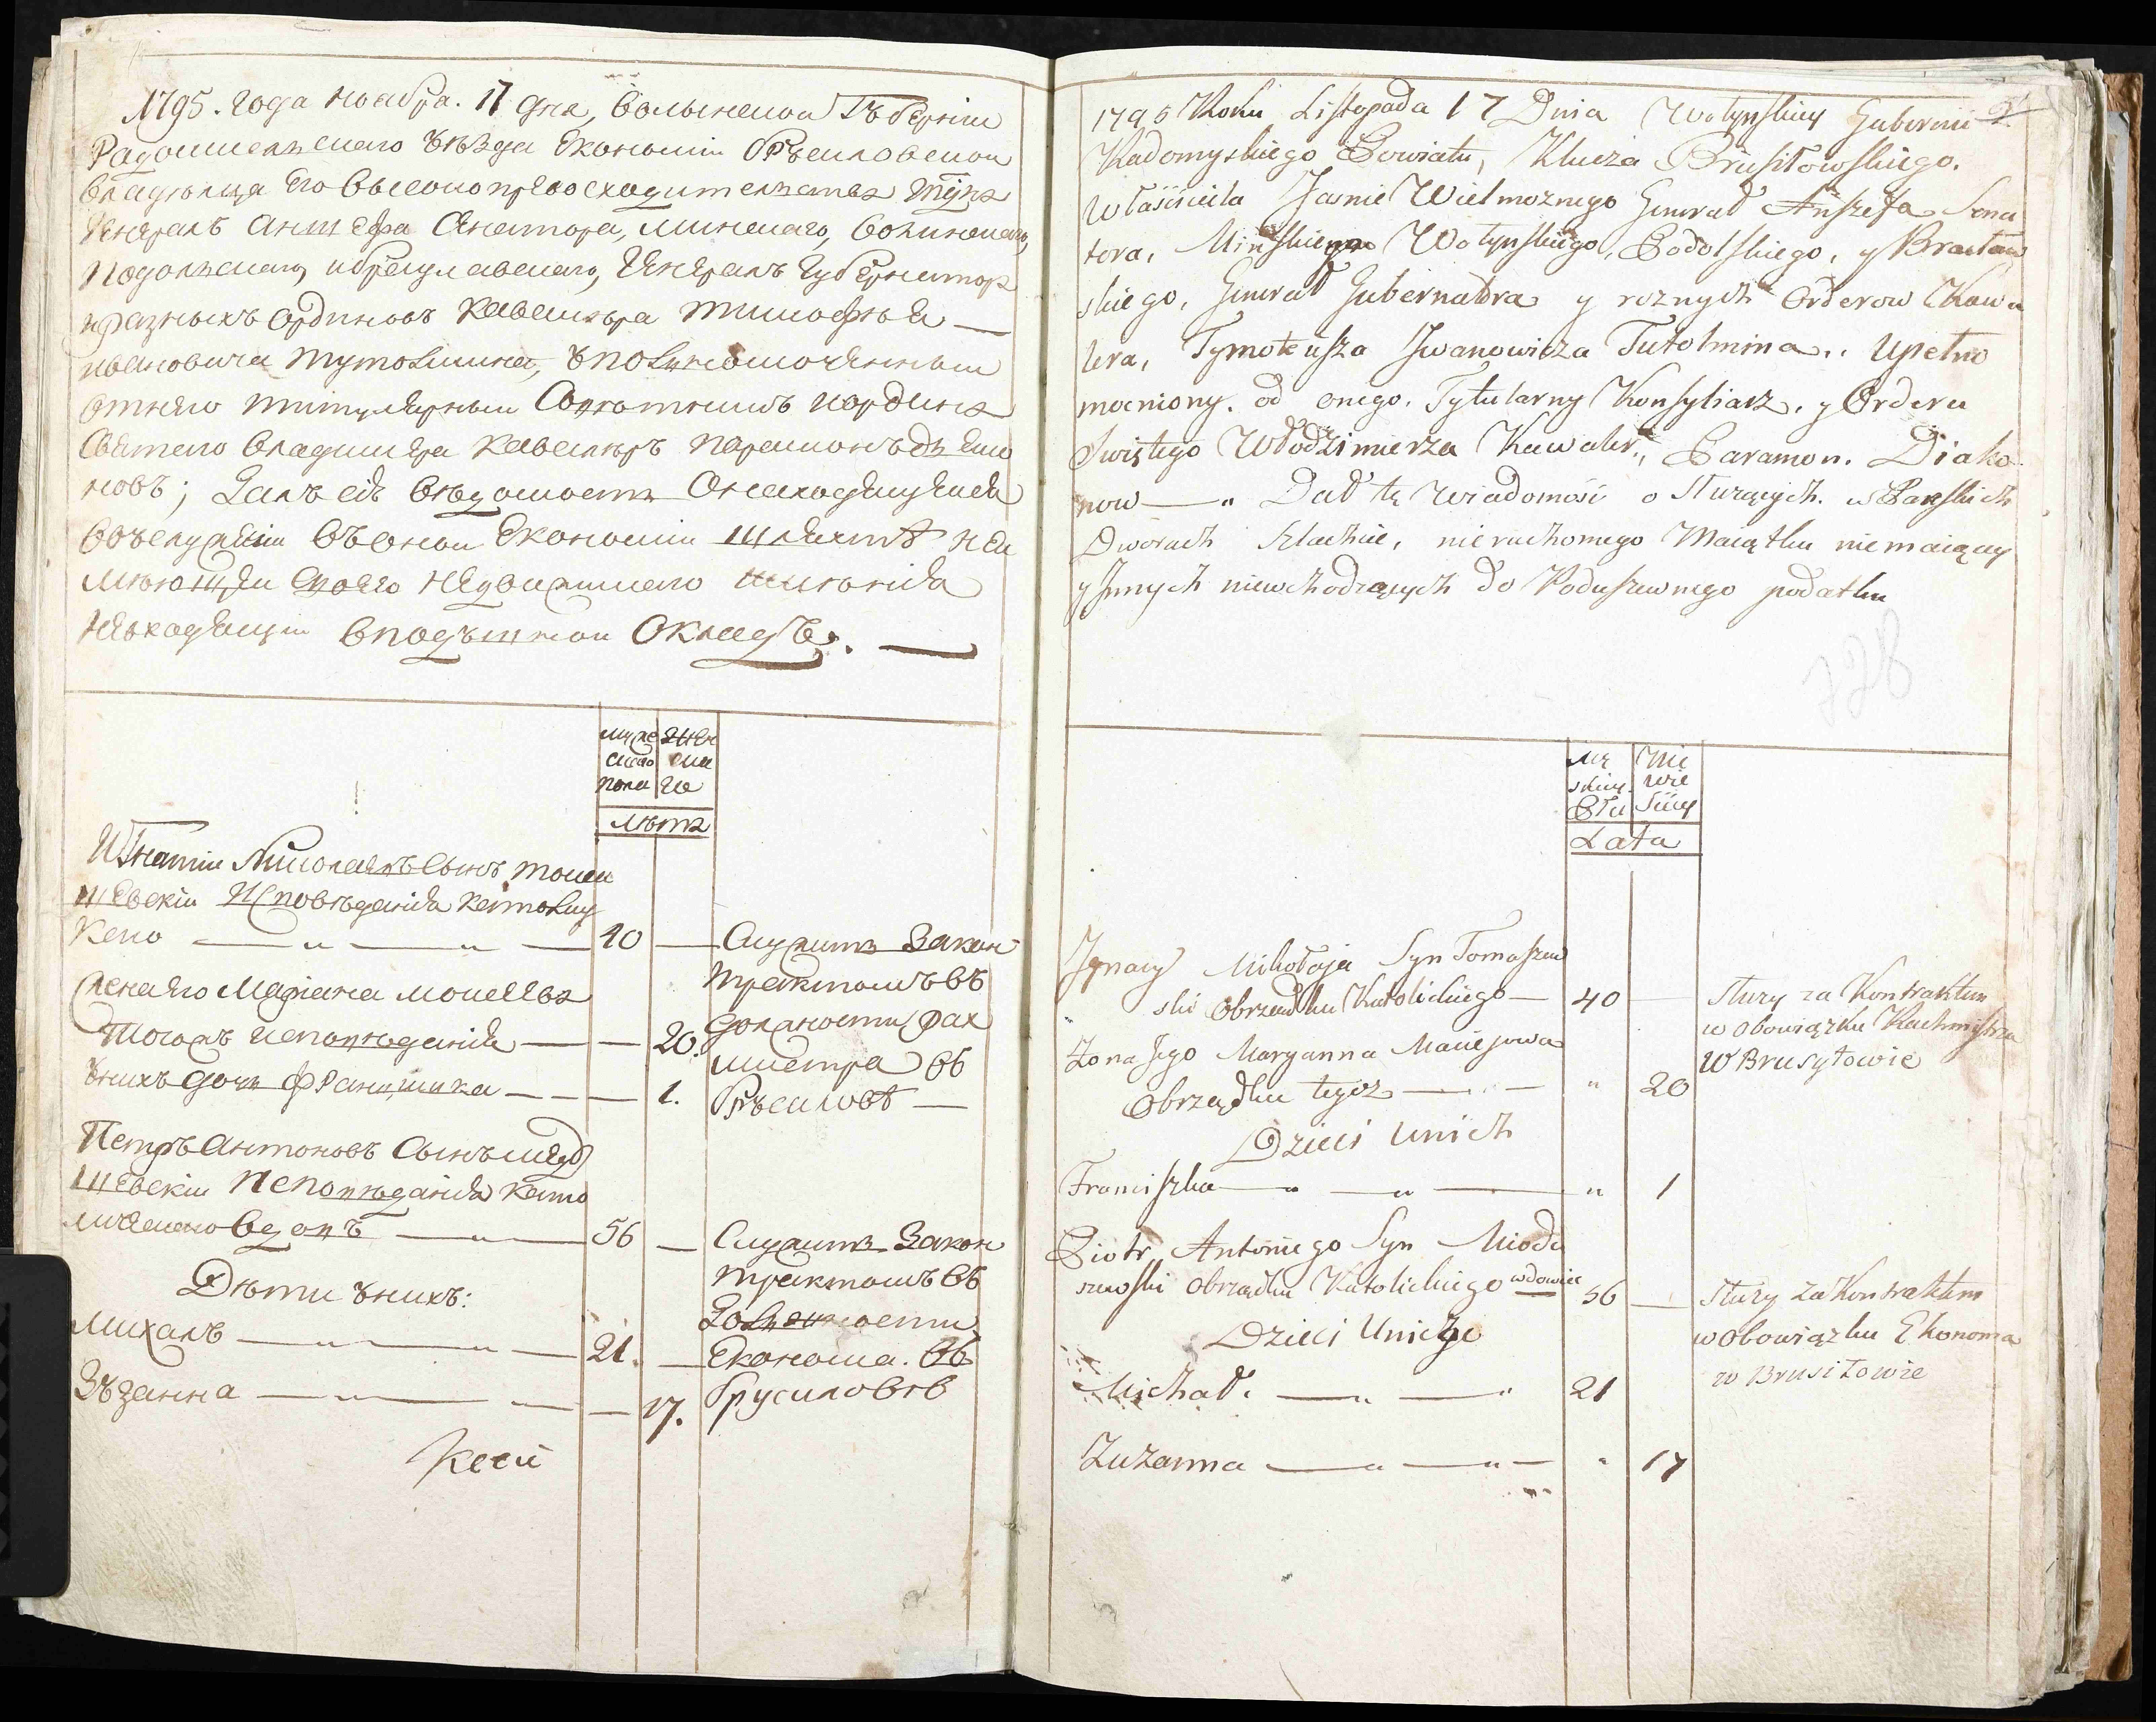 1795. года ноября. 17 дня, волынской Губернiи
Радомисльскаго уезда Економiи Брусиловской
владельца Его Высокопревосходительства
Генералъ Аншефа Сенатора, Минскаго, Волынскаго,
Подольскаго, и Браславскаго, Генералъ Губернатора
и разныхъ Ординовъ Кавалера Тимофея —
Ивановича Тутолмина, уполномоченныи
отнего титулярныи Советникъ и ордина
Святаго Владимера Кавалеръ Парамонъ Дьяко
новъ; Далъ сiю ведомость О находящихся
Воъслуженiи Въоной Економiи шляхте не и
меющеи своего недвижимаго имения
невходящiи вподушнои Окладъ. —
муже скаго пола
женска го
летъ
Игнатiи Николаевъ Сынъ Тома
шевскiи Исповеданiя католиц
каго — „ — „ — 40 — Служитъ Закон
трактомъ въ
жена его Марiана
тогожъ исповеданiя — — 20. должности рах
мистра въ
унихъ дочь Францишка — — — 1. Брусилове —
Петръ Антоновъ Сынъ медо
шевскiи исповеданiя като
личскаго вдовъ — „ — 56 — Служитъ Закон
трактомъ въ
Дети унихъ:
должности
Михалъ — „ — „ — 21. — Економа. въ
Зузанна — „ — — — 17. Брусилове
1795 Roku Listopada 17 Dnia Wołynskiey Gubernii
Radomyskiego Powiatu, Klucza Brusiłowskiego.
Właściciela Jasnie Wielmoznego Generał Anszefa Sena
tora, Minskiego Wołynskiego, Podolskiego, y Bracław
skiego, Generał Gubernatora y roznych Orderow Kawa
lera, Tymoteusza Jwanowicza Tutolmina,, Upełno
mocniony. od onego. Tytularny Konsyliarz, y Orderu
Swiętego Włodzimierza Kawaler,, Paramon. Diako
now — „ Dał tę Wiadomość o Słuzących. w Panskich
Dworach Szlachcie, nieruchomego Maiątku niemaiącey
y Jnnych niewchodzących do Poduszewnego podatku
728
Mę skiey Płci
Nie wie sciey
Lata
Jgnacy Mikołaja Syn Tomaszew
ski Obrządku Katolickiego — 40 — Służy za Kontraktem
w Obowiązku Rachmistrza
Zona Jego Maryanna Maciejowa
W Brusyłowie
Obrządku tegoz — — „ 20
Dzieci Unich
Franciszka — „ — „ — „ 1
Piotr Antoniego Syn Miodu
szewski Obrządku Katolickiego wdowiec — 56 — Służy za Kontraktem
Dzieci Unichze
w Obowiązku Ekonoma
w Brusiłowie
Michał. — „ — „ 21
Zuzanna — „ — „ — „ 17